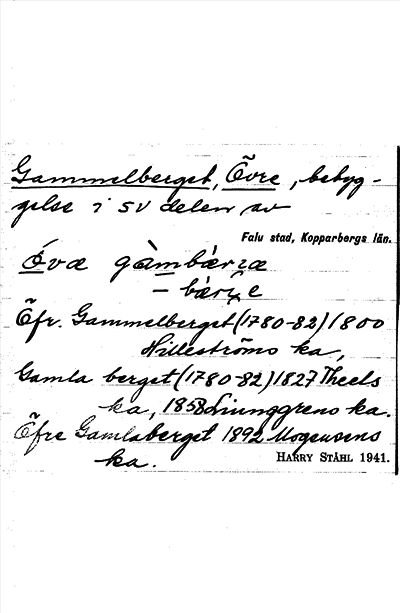 Gammelberget, Övre, bebyg-
gelse i SV delen av
Falu stad, Kopparbergs län.
Öfr. Gammelberget (1780-82) 1800
Hilleströms ka,
Gamla berget (1780-82) 1827 Theels
ka, 1858 Ljunggrens ka.
Öfre Gamlaberget 1892 Mogensens
ka.
HARRY STÅHL 1941.